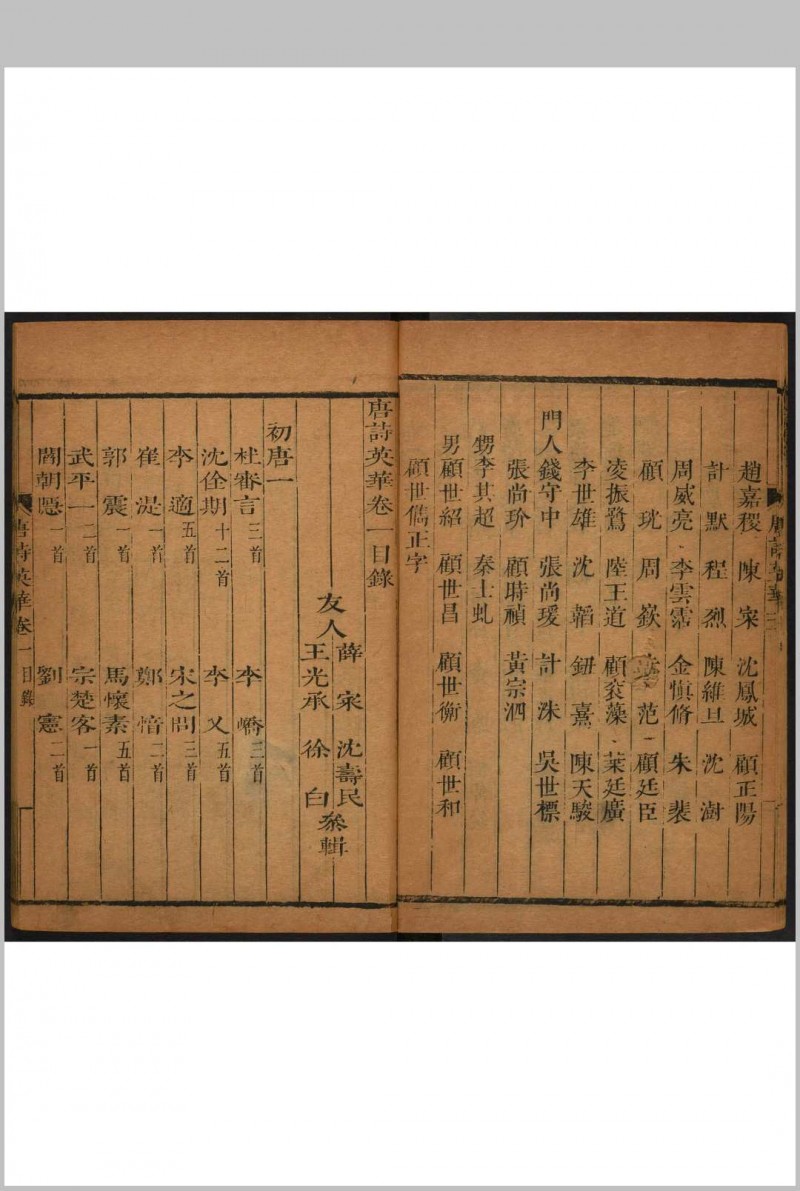 趙嘉稷 陳寀 沈鳳城 顧正陽
計默 程烈 陳維旦 沈澍
周威亮 李雲霑 金慎脩 朱裴
顧珖 周嶔 范 顧廷臣
凌振鷺 陸王道 顧袞藻 葉廷廣
李世雄 沈韜 鈕熹 陳天駿
門人錢守中 張尚瑗 計洙 吳世標
張尚玠 顧時禎 黃宗泗
甥李其超 秦士虬
男顧世紹 顧世昌 顧世衡 顧世和
顧世儁正字
唐詩英華卷一目錄
友人薛寀 沈壽民 王光承 徐白 叅輯
初唐一
杜審言三首 李嶠三首
沈佺期十二首 李乂五首
李適五首 宋之問三首
崔湜一首 鄭愔二首
郭震一首 馬懷素五首
武平一二首 宗楚客一首
閻朝隱一首 劉憲二首
唐詩英華卷一 目錄